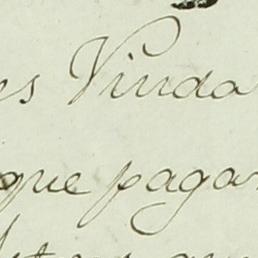 es Vinda
que pagar